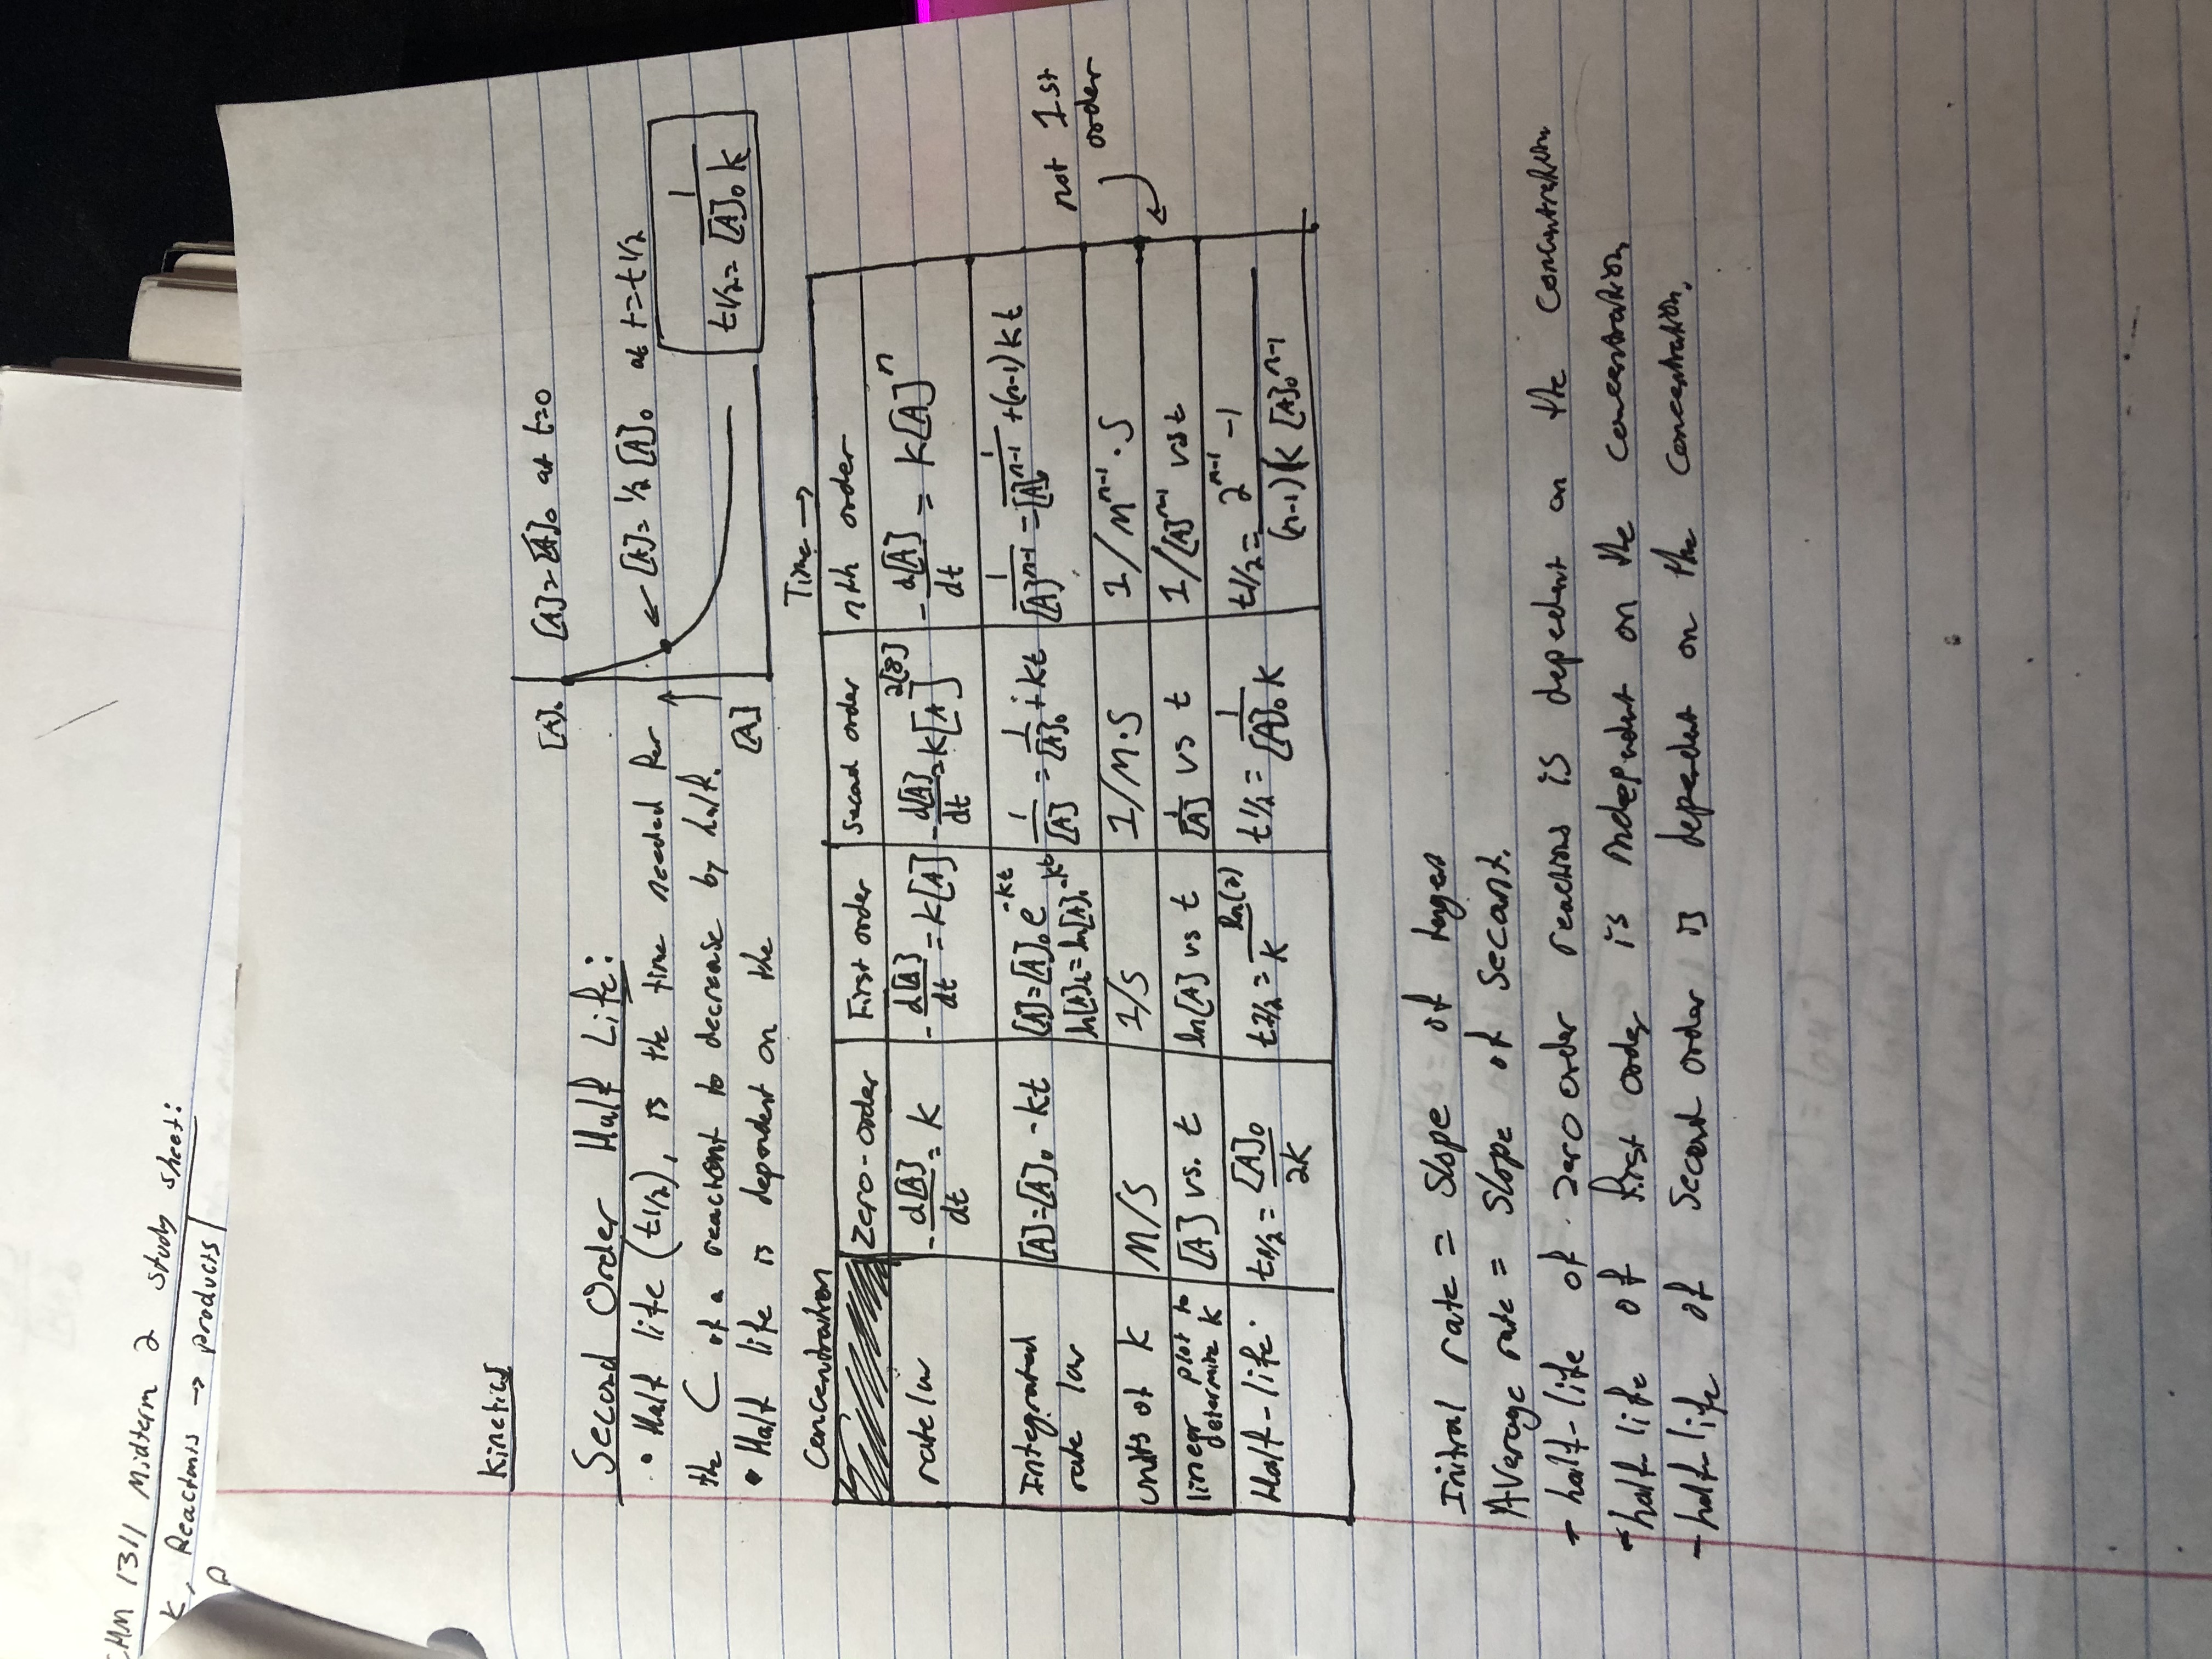 CHM 1311 Midterm 2 study sheet:
K, Reactants → products
Kinetics
Second Order Half Life:
• Half life (t1/2), is the time needed for
the C of a reactant to decrease by half.
• Half life is dependent on the
[A]₀
[A]=[A]₀ at t=0
← [A]=1/2[A]₀ at t=t1/2
[A]
t1/2= 1/[A]₀k
Concentration
Time →
zero-order First order Second order nth order
rate law -d[A]/dt=k -d[A]/dt=k[A] -d[A]/dt=k[A]² -d[A]/dt=k[A]ⁿ
Integrated rate law [A]=[A]₀-kt [A]=[A]₀e^-kt ln[A]t=ln[A]₀-kt 1/[A]=1/[A]₀+kt 1/[A]^n-1=1/[A]₀^n-1+(n-1)kt
not 1st
order
units of k M/S 1/S 1/M·S 1/M^n-1·S
linear plot to determine k [A] vs. t ln[A] vs t 1/[A] vs t 1/[A]^n-1 vs t
Half-life: t1/2=[A]₀/2k t1/2=ln(2)/k t1/2=1/[A]₀k t1/2=2^n-1-1/(n-1)k[A]₀^n-1
Initial rate = Slope of
Average rate = Slope of Secant.
- half-life of zero order reactions is depedent on the concentration
- half life of first order is independent on the concentration
- half life of Second order is depedent on the concentration.